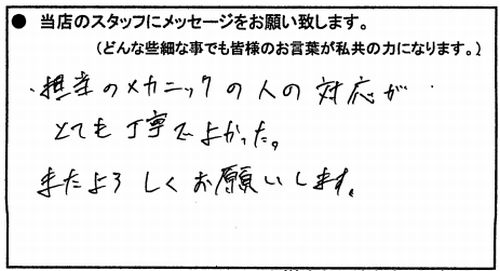 ● 当店のスタッフにメッセージをお願い致します。
(どんな些細な事でも皆様のお言葉が私共の力になります。)
・担当のメカニックの人の対応が
とても丁寧でよかった。
またよろしくお願いします。